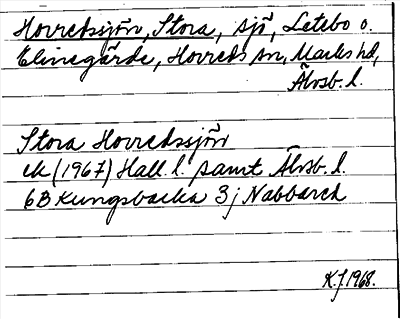 Horredssjön, Stora, sjö, Letebo o.
Elinegärde, Horreds sn, Marks hd,
Älvsb. l.
Stora Horredssjön
ek (1967) Hall. l. samt Älvsb. l.
6B Kungsbacka 3j Nabbared
K.J. 1968.